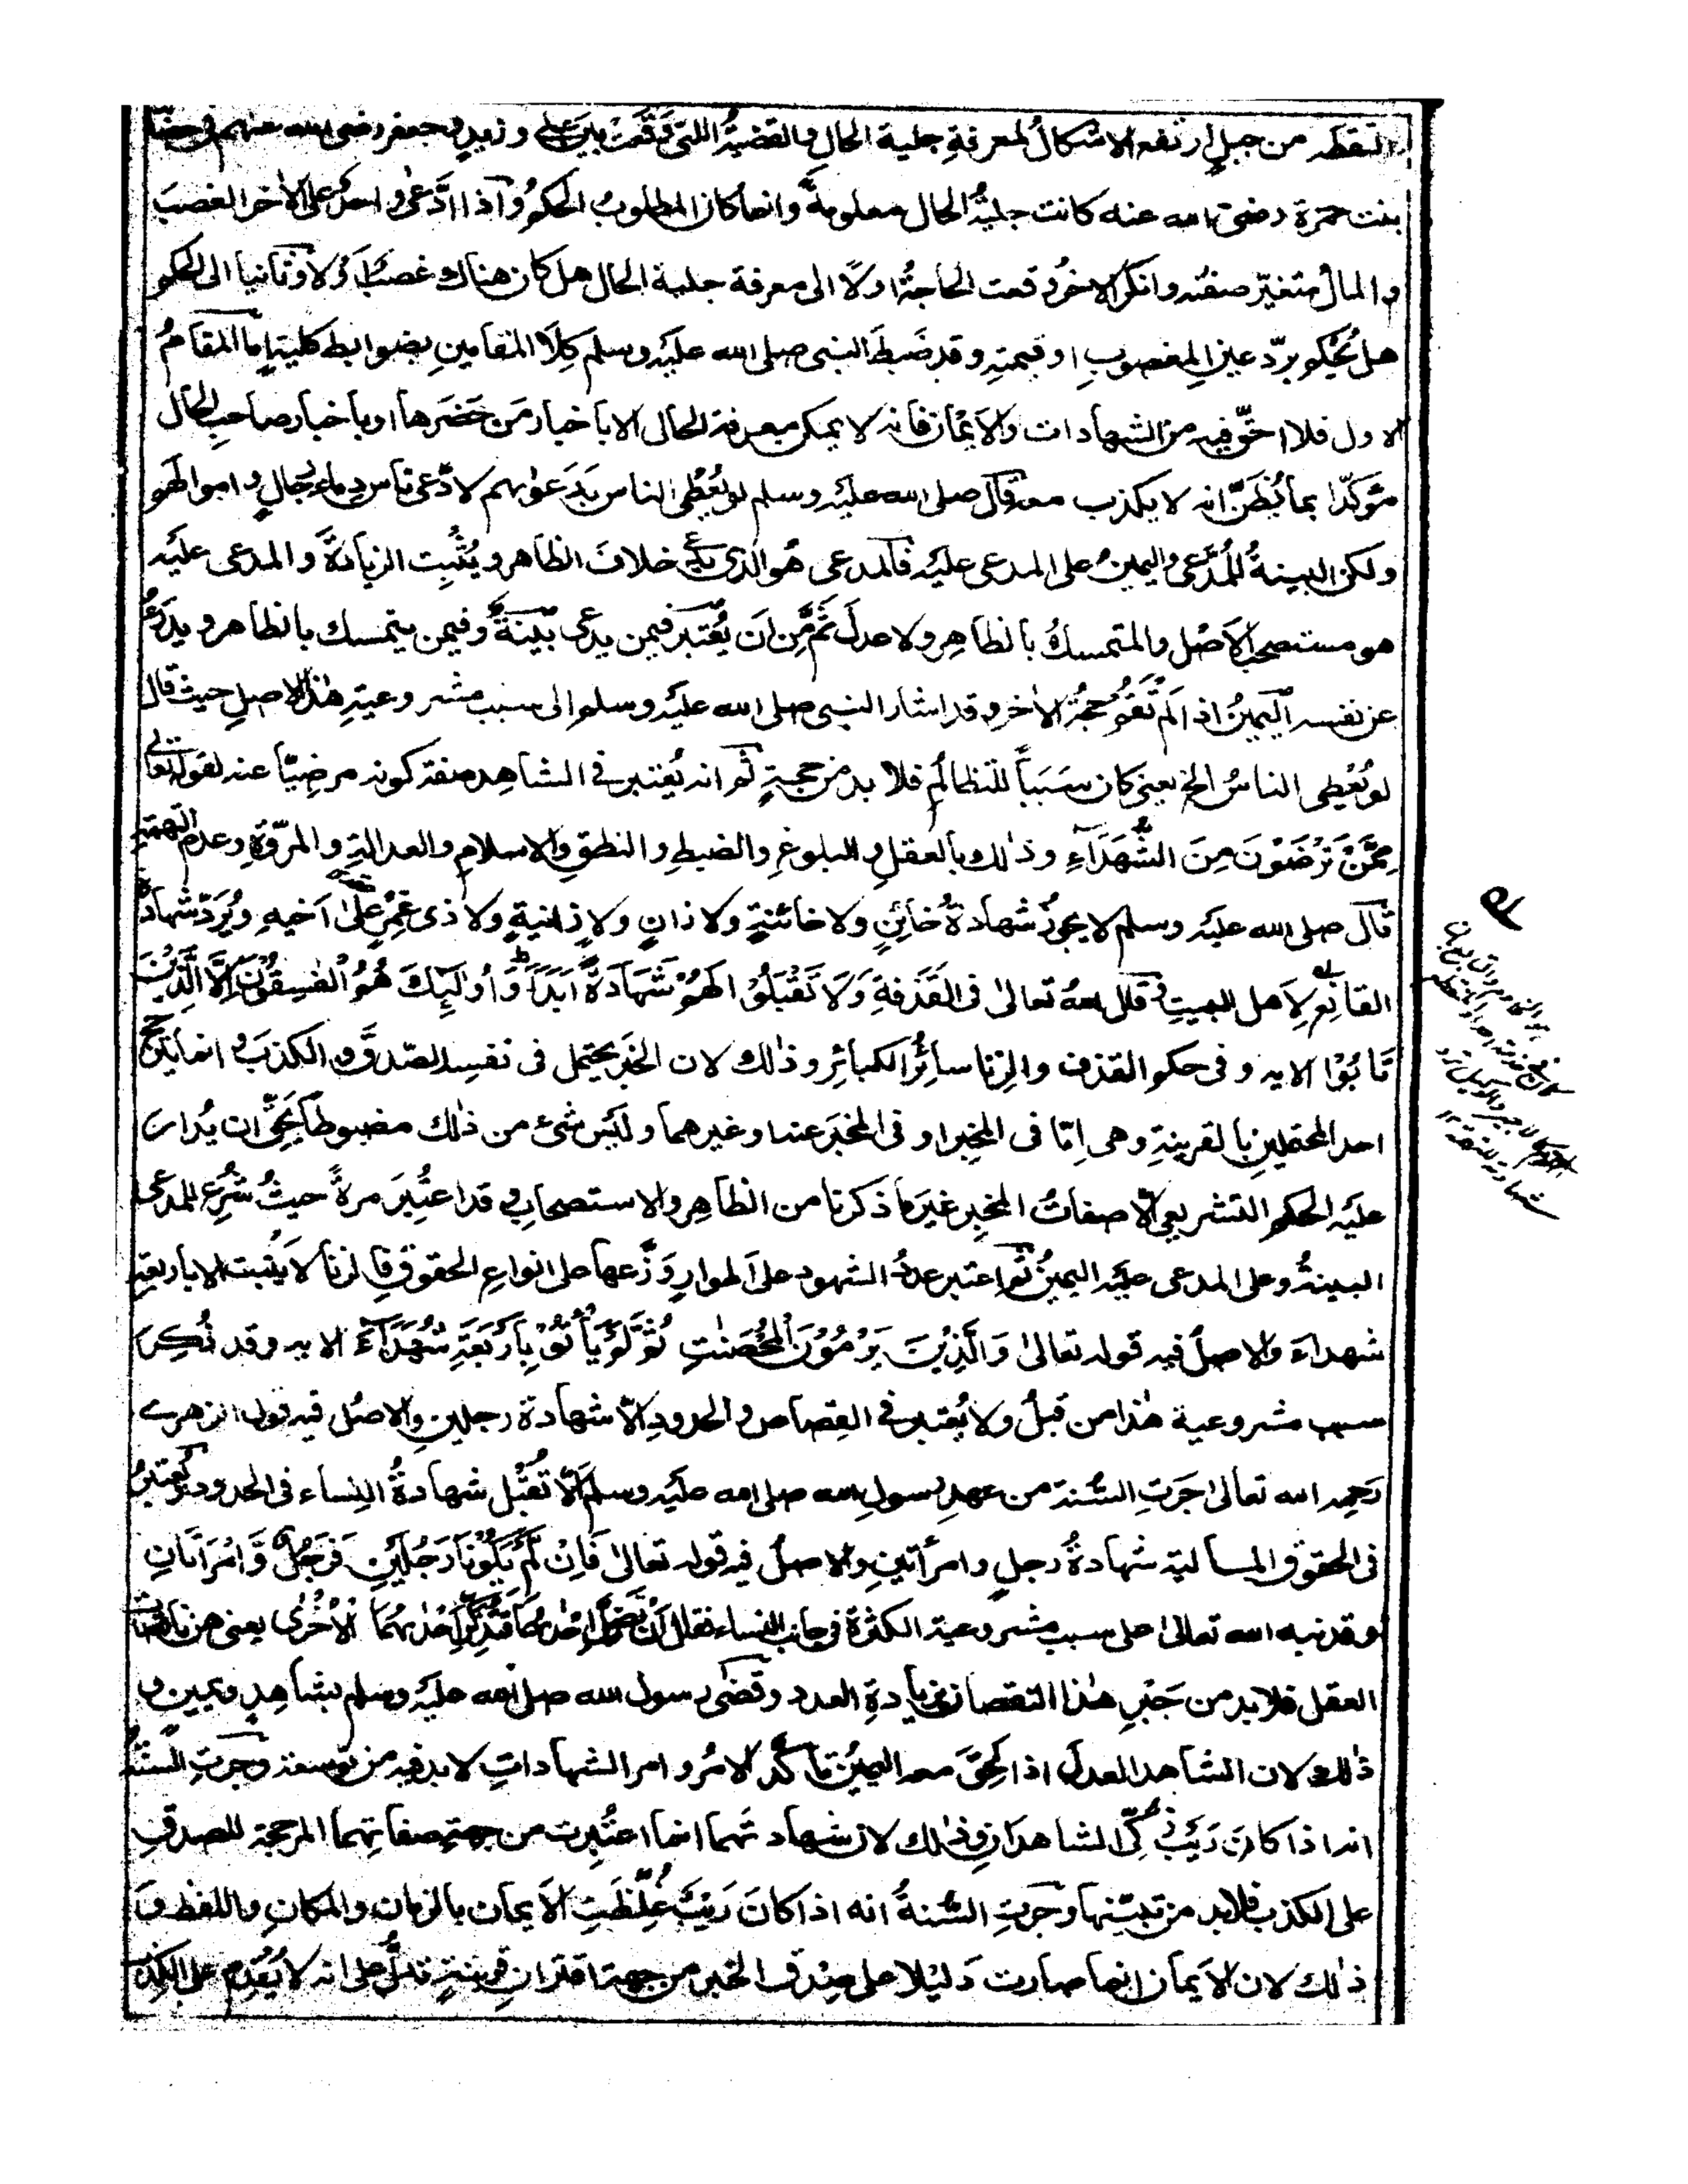 تسقط من جبل ارتفع الاشكالُ لمعرفةِ جلية الحال والقضيةُ اللتى وَقَعَتْ بينَ على وزيدٍ وجعفر رضى الله عنهم فى حضانة
بنت حمزة رضى الله عنه كانت جليةُ الحال معلومةً وانما كان المطلوبُ الحكمُ واذا ادَّعىٰ واحدٌ على الأخر الغصبَ
والمالُ متغيّر صفتُه وانكر الأخرُ وقعت الحاجةُ اولًا الى معرفة جلية الحال هل كان هناك غصبٌ أوْلا وثانيا الى الحكم
هل يُحكم بردّ عينِ المغصوبِ او قيمتِه وقد ضَبطَ النبى صلى الله عليه وسلم كِلَا المقامينِ بضوابط كليةٍ اما المقامُ
الاول فلا احقّ فيه من الشهادات والاَيْمانِ فانه لا يمكن معرفة الحال الا باخبار مَن حَضَرها او باخبار صاحبِ الحال
مؤكّدًا بما يُظَنّ انه لا يكذب معه قال صلى الله عليه وسلم لو يُعْطى الناس بِدَعوٰىهم لادّعى ناس دِماء رجالٍ واموالهم
ولكن البينةُ للمُدَّعى واليمينُ على المدعى عليه فالمدعى هُو الذى يدّعى خلافَ الظاهر ويُثْبِت الزيادةَ والمدعى عليه
هو مستصحب الاَصْل والمتمسكُ بالظاهِر ولا عدلَ ثَمَّ مِّن اَن يُعْتبر فيمن يدعى بيّنةً وفيمن يتمسك بالظاهر ويدرَءُ
عن نفسه اليمينُ اذا لَم تَقُمْ حُجةُ الأخر وقد اشار النبى صلى الله عليه وسلم الى سبب مشروعيةِ هٰذا الاصلِ حيث قال
لو يُعْطى الناسُ الخ يعنى كان سَبَباً للتظالُم فلا بد من حجةٍ ثم انه يُعْتبر فى الشاهد صفة كونه مرضِيّا عنه لقوله تعالى
مِمَّنْ تَرْضَوْنَ مِنَ الشُّهَدَآءِ وذٰلك بالعقلِ والبلوغِ والضبطِ والنطقِ والاسلامِ والعدالةِ والمروّةِ وعدم التهمةِ
قال صلى الله عليه وسلم لا يجوزُ شهادةُ خائنٍ ولا خائنةٍ ولا زانٍ ولا زانيةٍ ولا ذى غِمْرٍ علىٰ اَخيهِ ويُرَدّ شهادةُ
القانِع لِاَهل البيتِ وقال الله تعالىٰ فى القَذَفةِ وَلَا تَقْبَلُوْا لَهُمْ شَهَادَةً اَبَدًا وَاُولٰٓئِكَ هُمُ الْفٰسِقُوْنَ اِلَّا الَّذِيْنَ
تَابُوْا الاية وفى حكم القذف والزنا سائرُ الكبائرِ وذٰلك لان الخبرَ يحتمل فى نفسِه الصّدقَ والكذبَ وانما يترجّح
احد المحتملينِ بالقرينةِ وهى اِمّا فى المخبِر او فى المخبَر عنه او غيرهما ولَيْس شىٔ من ذٰلك مضبوطًا يَحِقُّ ان يُدارَ
عليه الحكم التشريعى الّا صفاتُ المخبِرِ غيرَ ما ذكرنا من الظاهِر والاستصحابِ وقد اعتُبِرَ مرةً حيثُ شُرِعَ للمدعى
البينةُ وعلى المدعى عليه اليمينُ ثم اعتبر عددُ الشهود على اَطوارٍ وَزَّعها على انواعِ الحقوقِ فالزنا لا يَثْبت الا باربعةِ
شهداءَ والاصلُ فيه قوله تعالىٰ وَالَّذِيْنَ يَرْمُوْنَ الْمُحْصَنٰتِ ثُمَّ لَمْ يَأْتُوْا بِاَرْبَعَةِ شُهَدَآءَ الاية وقد ذُكِرَ
سبب مشروعية هٰذا من قبلُ ولا يُعْتبر فى القِصاص والحدودِ الّا شهادةُ رجلينِ والاصْل فيه قول الزهرى
رَحِمه الله تعالىٰ جَرَتِ السُّنة من عهدِ رسولِ الله صلى الله عليه وسلم اَلّا تُقْبَل شهادةُ النِساء فى الحدود ويُعتبرُ
فى الحقوق المالية شهادةُ رجلٍ وامرأتينِ والاصلُ فيه قوله تعالىٰ فَاِنْ لَّمْ يَكُوْنَا رَجُلَيْنِ فَرَجُلٌ وَّامْرَاَتَانِ
وقد نبه الله تعالىٰ على سبب مشروعية الكثرة فى جانب النساء فقال اَنْ تَضِلَّ اِحْدٰىهُمَا فَتُذَكِّرَ اِحْدٰىهُمَا الْاُخْرٰى يعنى هن ناقصات
العقل فلا بد من جَبْرِ هٰذا النقصان بزيادةِ العدد وقضىٰ رسول الله صلى الله عليه وسلم بشاهدٍ ويمينٍ و
ذٰلك لان الشاهد العدلَ اذا لَحِقَ معه اليمينُ تأكّد الامرُ وامر الشهاداتِ لا بد فيه من توسعة وجَرتِ السُّنةُ
انه اذا كان رَيْبٌ زُكِّىَ الشاهدانِ وذٰلك لان شهادتَهما انما اعتُبِرت من جهةِ صفاتِهما المرجحة للصدقِ
على الكذب فلابد من تبيّنها وجَرتِ السُّنةُ انه اذا كانَ رَيْبٌ غُلِّظَتِ الاَيمان بالزمان والمكانِ واللفظ و
ذٰلك لان الاَيمان انما صارت دَليْلا على صِدْق الخبر من جهة اقترانِ قرينةٍ تدلُّ على انه لا يُقْدِم على الكذب